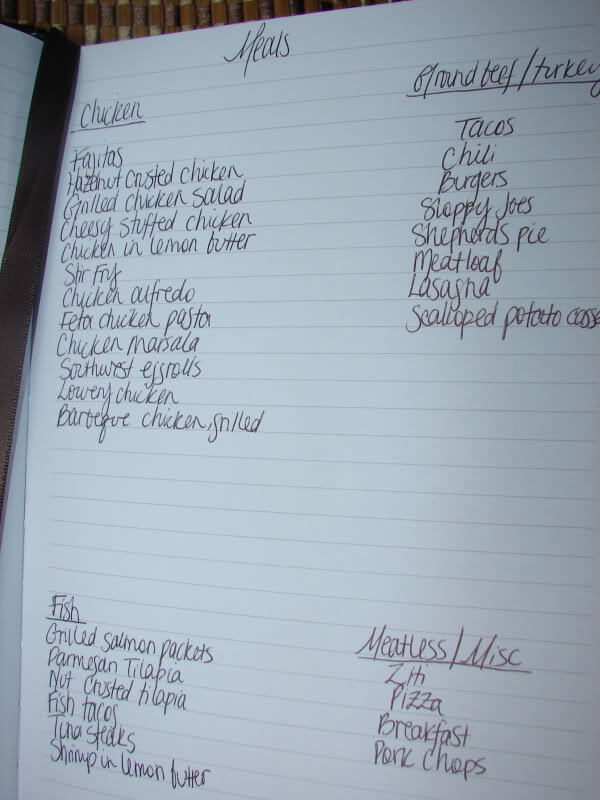 Meals
Chicken
Fajitas
Hazelnut Crusted chicken
Grilled chicken salad
Cheesy stuffed chicken
Chicken in lemon butter
Stir Fry
Chicken alfredo
Feta chicken pasta
Chicken marsala
Southwest eggrolls
Lowery chicken
Barbeque chicken, grilled
Ground beef/turkey
Tacos
Chili
Burgers
Sloppy Joes
Shepherds pie
Meatloaf
Lasagna
Scalloped potato casse
Fish
Grilled salmon packets
Parmesan Tilapia
Nut Crusted tilapia
Fish tacos
Tuna steaks
Shrimp in lemon butter
Meatless/Misc
Ziti
Pizza
Breakfast
Pork Chops